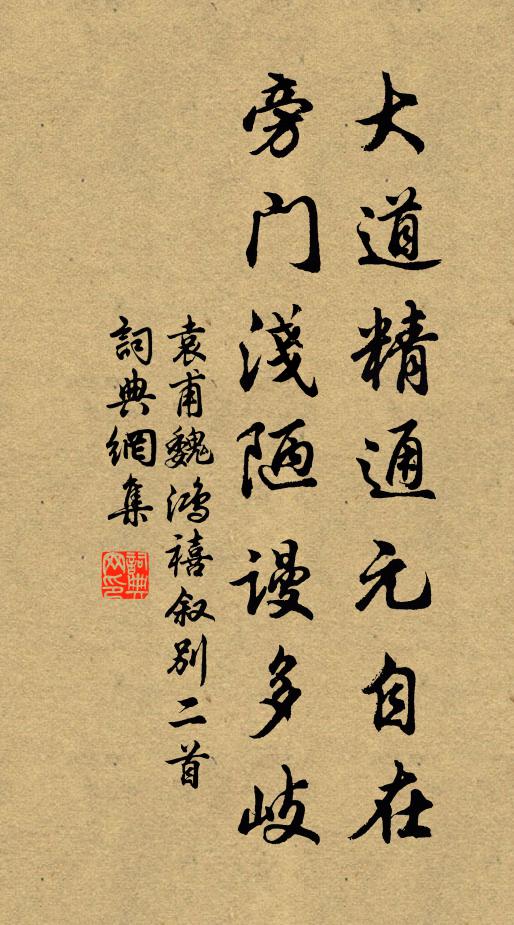 大道精通元自在
旁门淺陋谩多岐
袁甫魏鸿禧叙别二首
詞典網集
詞典网印